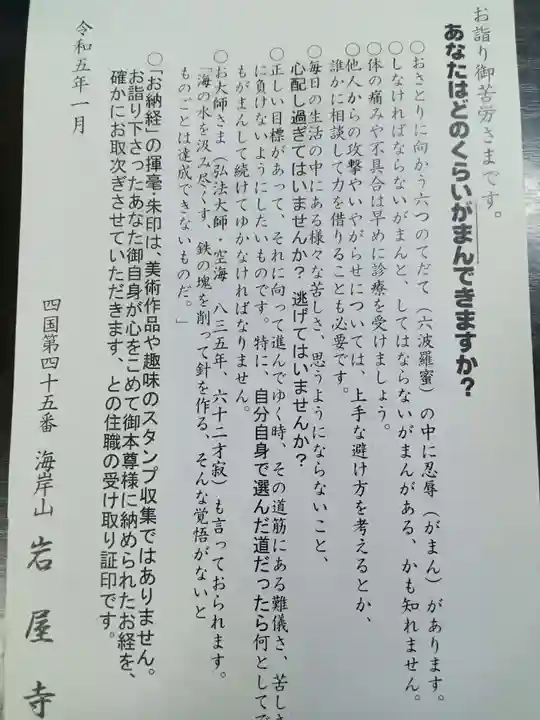 お詣り御苦労さまです。
あなたはどのくらいがまんできますか？
○おさとりに向かう六つのてだて（六波羅蜜）の中に忍辱（がまん）があります。
○しなければならないがまんと、してはならないがまんがある、かも知れません。
○体の痛みや不具合は早めに診療を受けましょう。
○他人からの攻撃やいやがらせについては、上手な避け方を考えるとか、
誰かに相談して力を借りることも必要です。
○毎日の生活の中にある様々な苦しさ、思うようにならないこと、
心配し過ぎてはいませんか？逃げてはいませんか？
○正しい目標があって、それに向って進んでゆく時、その道筋にある難儀さ、苦しさ
に負けないようにしたいものです。特に、自分自身で選んだ道だったら何としてで
もがまんして続けてゆかなければなりません。
○お大師さま（弘法大師・空海　八三五年、六十二才寂）も言っておられます。
「海の水を汲み尽くす、鉄の塊を削って針を作る、そんな覚悟がないと
ものごとは達成できないものだ。」
○「お納経」の揮毫・朱印は、美術作品や趣味のスタンプ収集ではありません。
お詣り下さったあなた御自身が心をこめて御本尊様に納められたお経を、
確かにお取次ぎさせていただきます、との住職の受け取り証印です。
令和五年一月
四国第四十五番　海岸山　岩屋寺